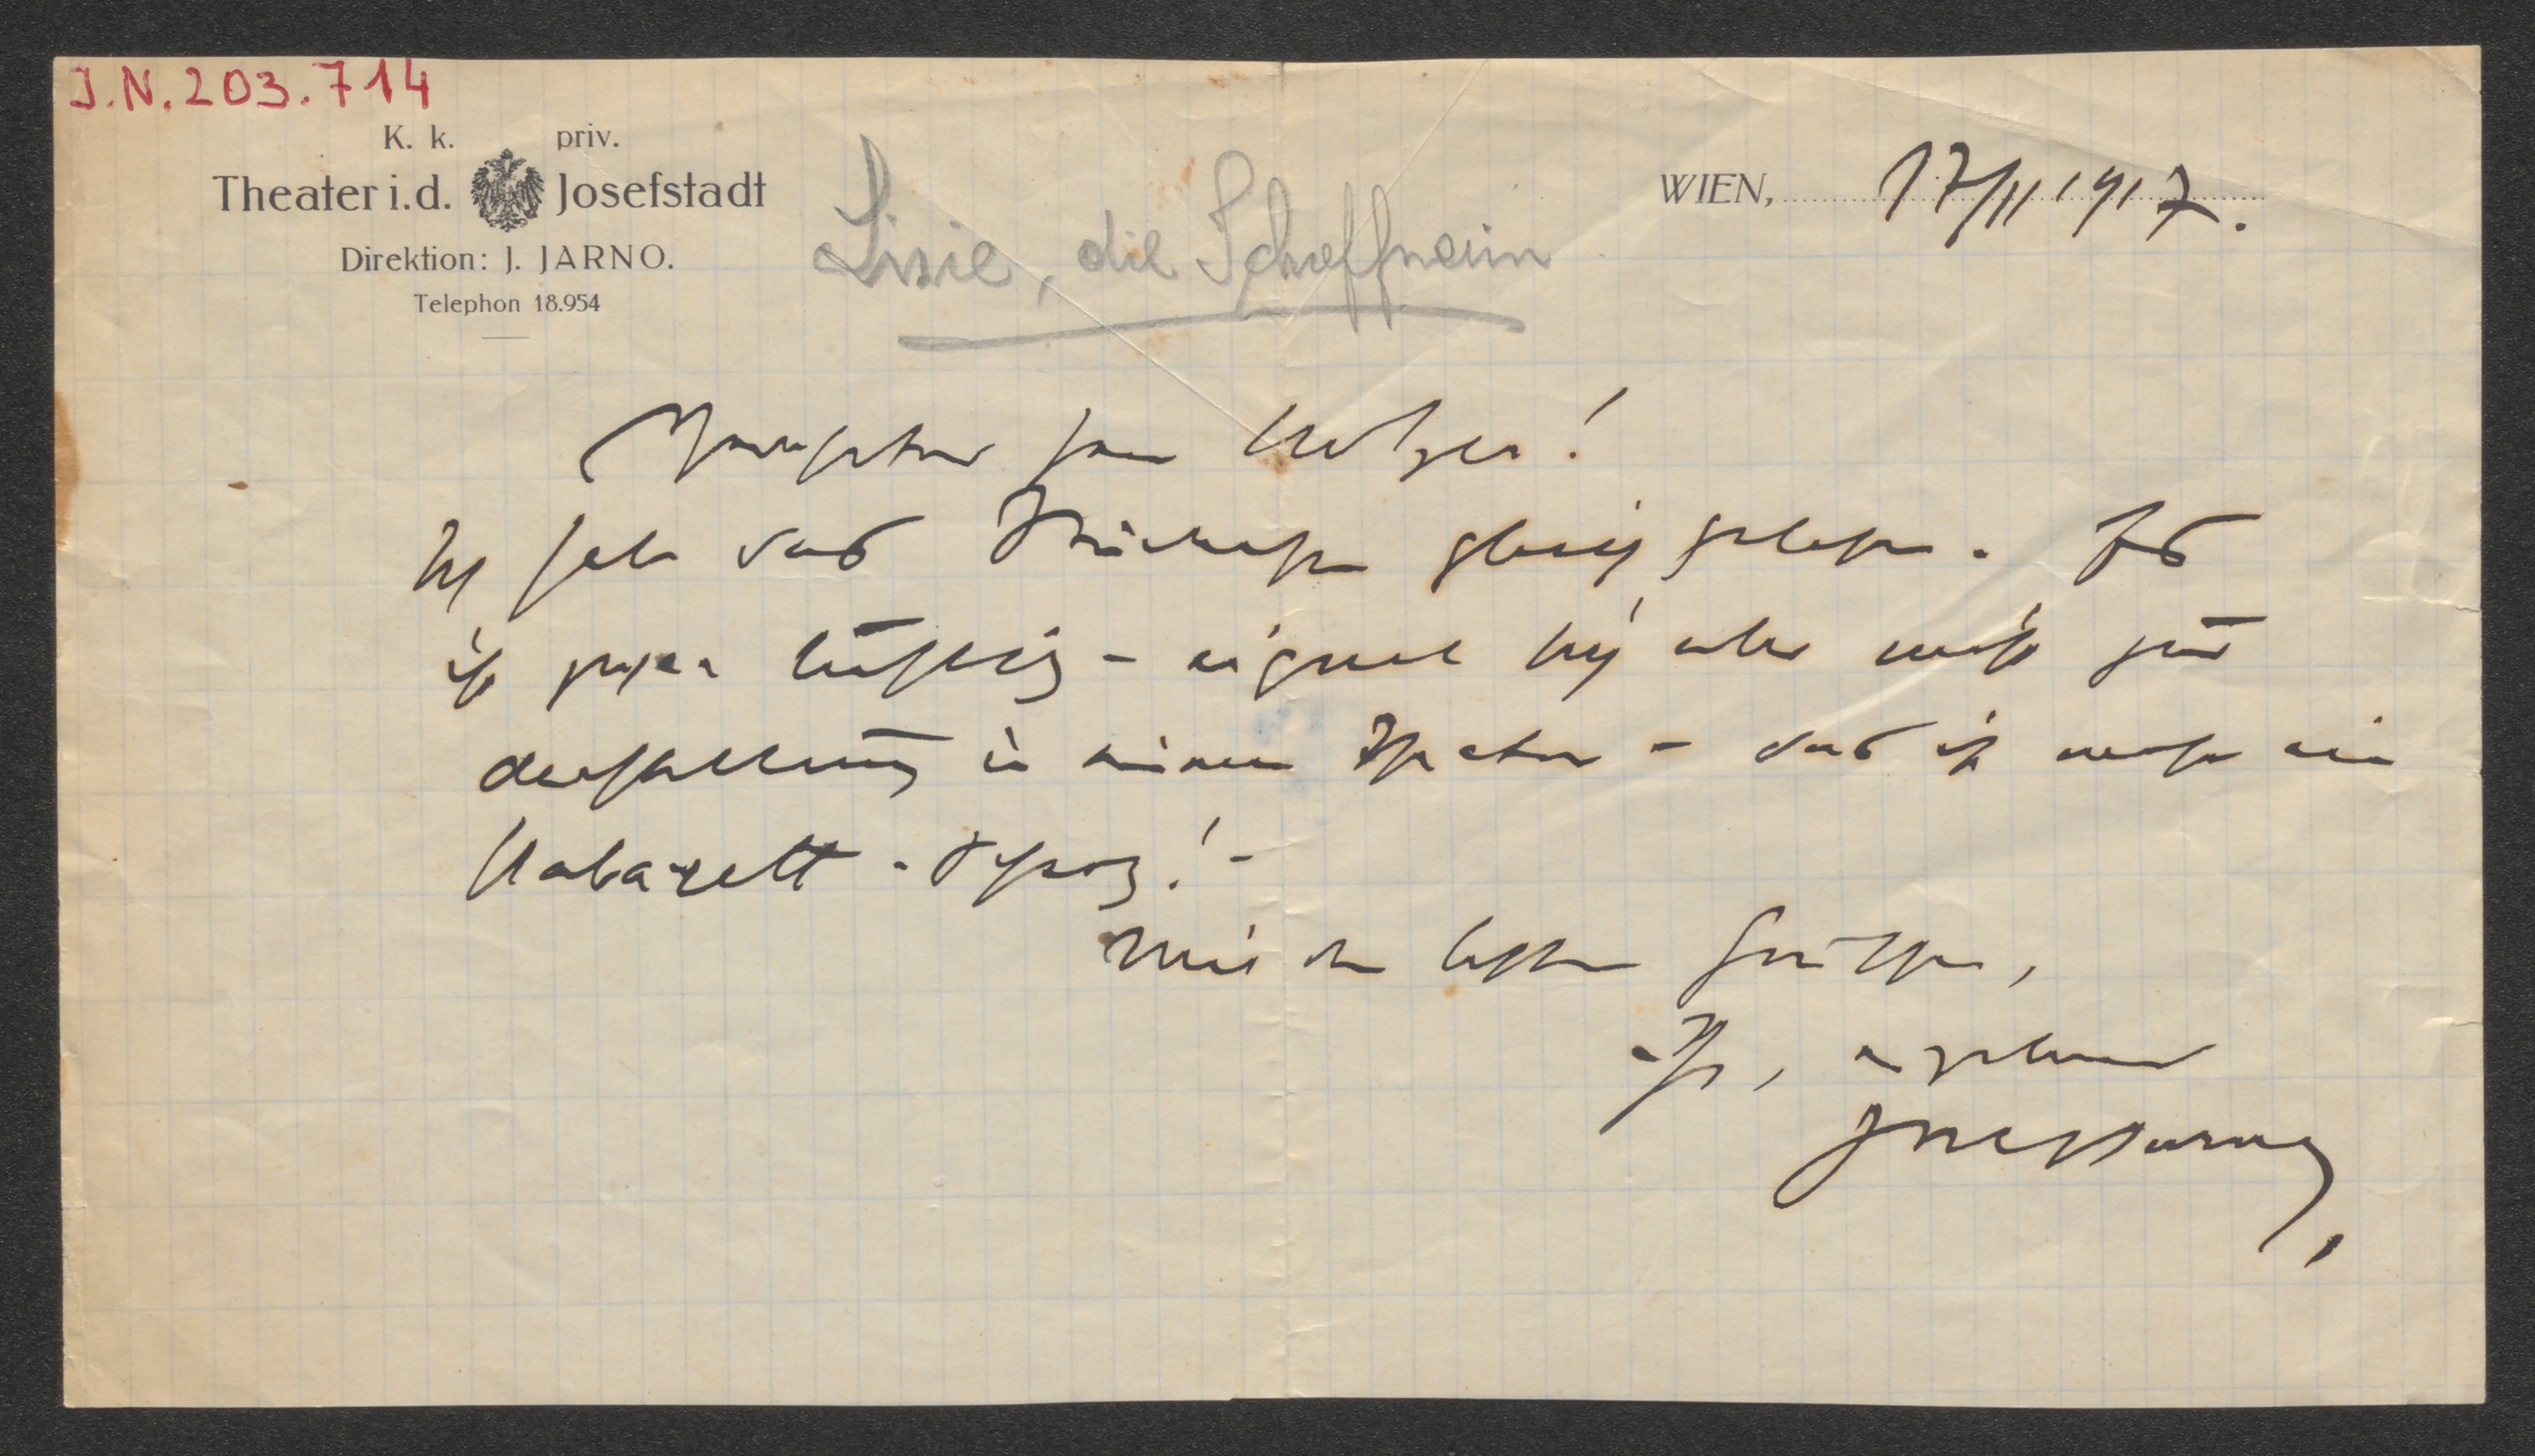 J.N. 203.714
K. k. priv.
Theater i. d. Josefstadt
Direktion: J. JARNO.
Telephon 18.954
WIEN, 17/II 1917.
Lisie, die Schaffnerin
Verehrter Herr
Ich habe das Stückchen gleich gelesen. Es
ist sehr lustig - eignet sich aber nicht zur
Darstellung in einem Theater - das ist mehr ein
Kabarett-Scherz! -
Mit den besten Grüssen,
Ihr, ergebener
Jarno